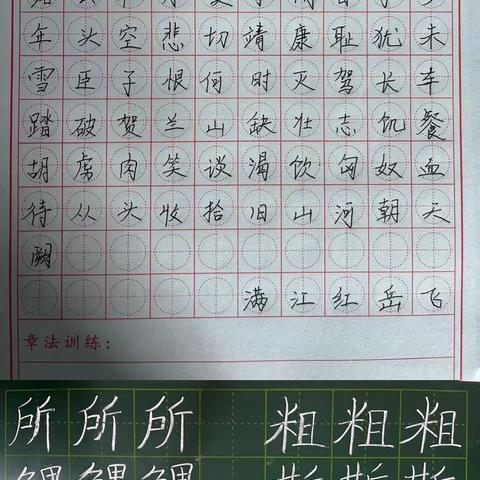 年头空悲切靖康耻犹未
雪臣子恨何时灭驾长车
踏破贺兰山缺壮志饥餐
胡虏肉笑谈渴饮匈奴血
待从头收拾旧山河朝天
阙
满江红岳飞
章法训练：
所所所 粗粗粗